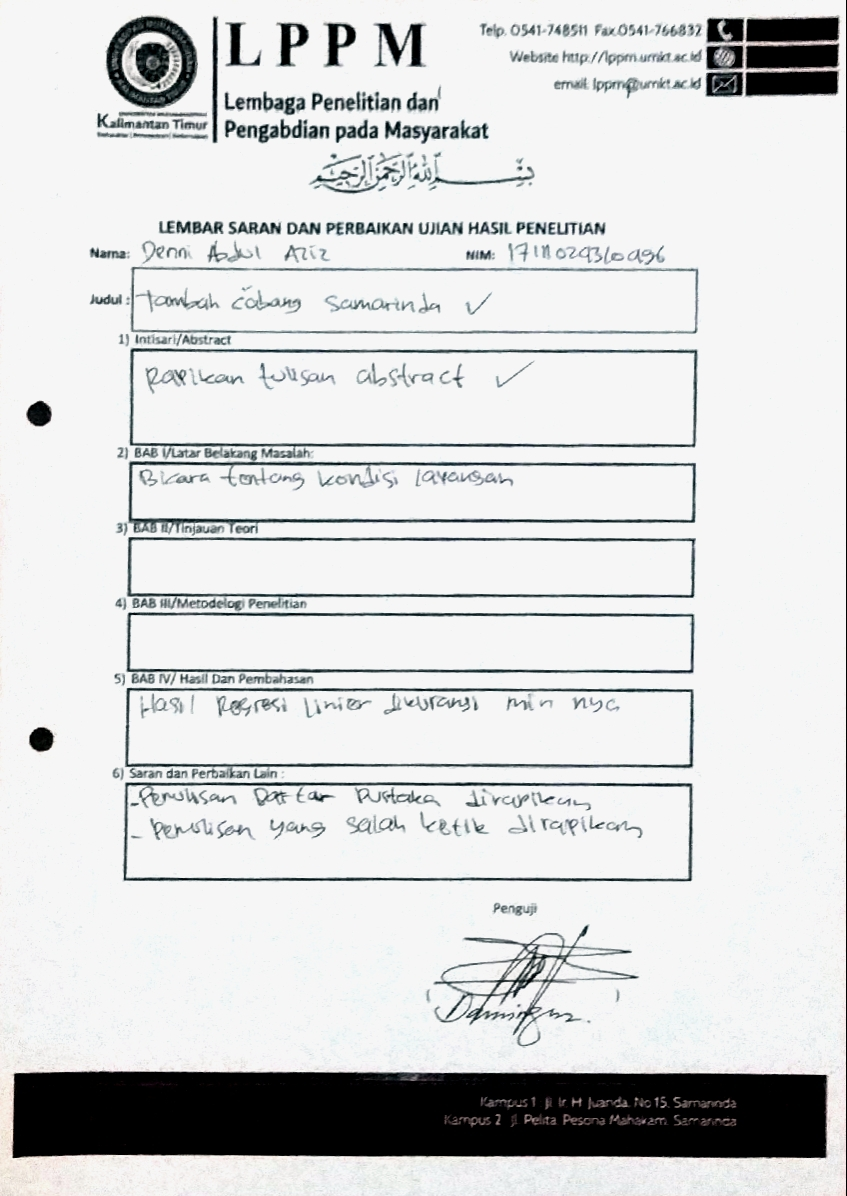 UNIVERSITAS MUHAMMADIYAH
KALIMANTAN TIMUR
Kalimantan Timur
LPPM
Lembaga Penelitian dan
Pengabdian pada Masyarakat
Telp. 0541-748511 Fax.0541-766832
Website http://lppm.umkt.ac.id
email: lppm@umkt.ac.id
بسم الله الرحمن الرحيم
LEMBAR SARAN DAN PERBAIKAN UJIAN HASIL PENELITIAN
Nama: Denni Abdul Aziz NIM:
Judul : Tambah cabang Samarinda ✓
1) Intisari/Abstract
Rapikan tulisan abstract ✓
2) BAB I/Latar Belakang Masalah:
Bicara tentang kondisi layangan
3) BAB II/Tinjauan Teori
4) BAB III/Metodologi Penelitian
5) BAB IV/ Hasil Dan Pembahasan
Hasil Regresi linier dikurangi min nya
6) Saran dan Perbaikan Lain :
- Penulisan Daftar Pustaka dirapikan
- Penulisan yang salah ketik dirapikan
Penguji
Kampus 1 Jl. Ir. H. Juanda, No 15, Samarinda
Kampus 2 Jl. Pelita Pesona Mahakam, Samarinda